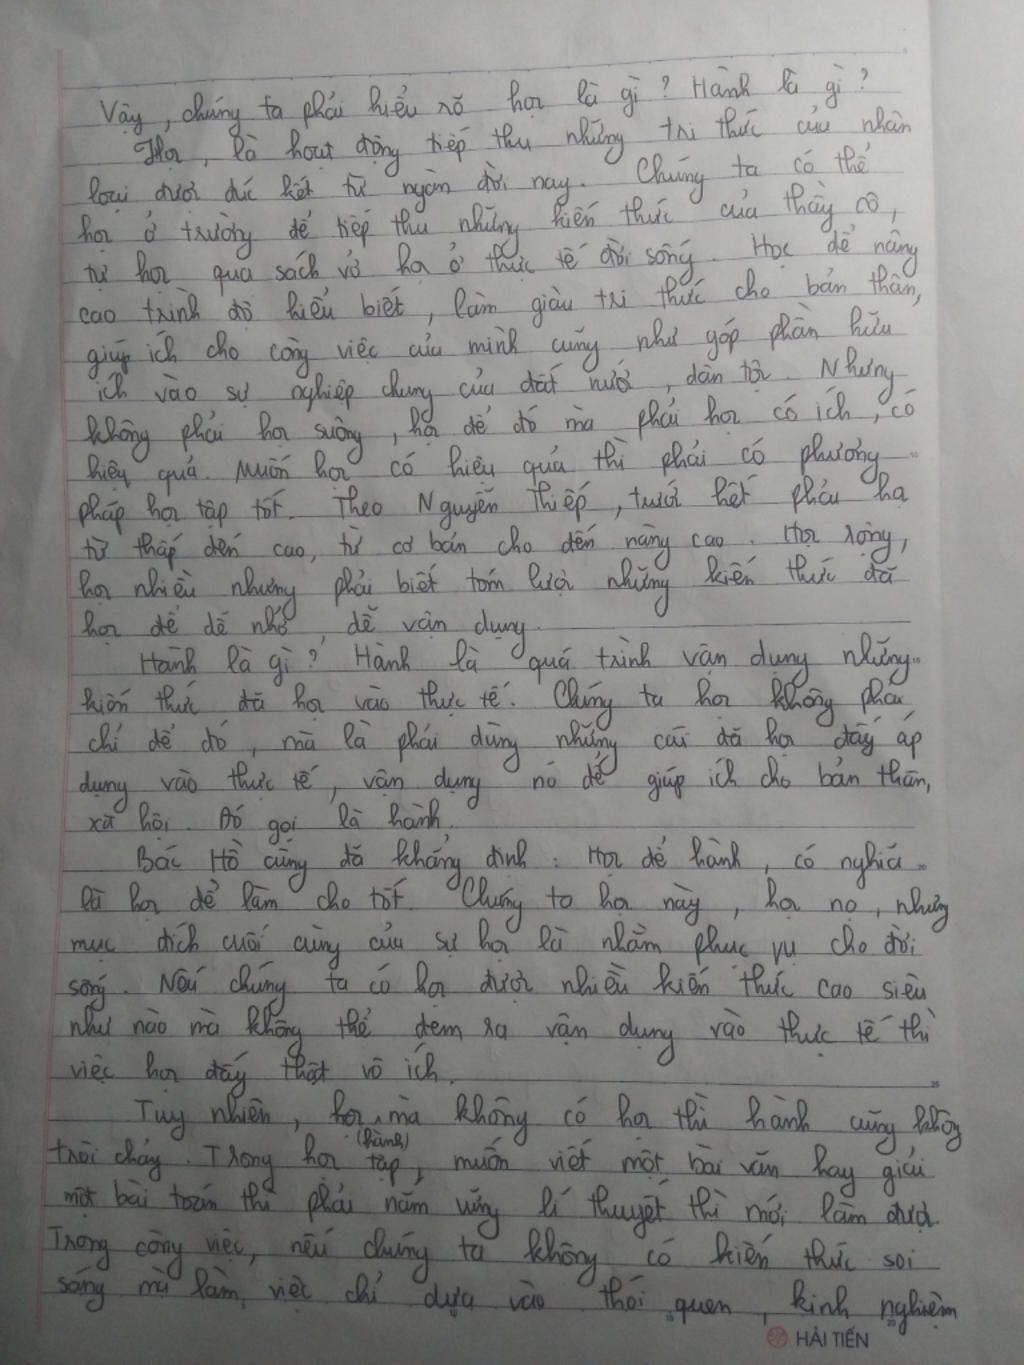 Vậy, chúng ta phải hiểu rõ học là gì? Hành là gì?
Học, là hoạt động tiếp thu những tri thức của nhân
loại được đúc kết từ ngàn đời nay. Chúng ta có thể
học ở trường để tiếp thu những kiến thức của thầy cô,
tự học qua sách vở học ở thực tế đời sống. Học để nâng
cao trình độ hiểu biết, làm giàu tri thức cho bản thân,
giúp ích cho công việc của mình cũng như góp phần hữu
ích vào sự nghiệp chung của đất nước, dân tộc. Nhưng
không phải học suông, học để đó mà phải học có ích, có
hiệu quả. Muốn học có hiệu quả thì phải có phương
pháp học tập tốt. Theo Nguyễn Thiếp, trước hết phải học
từ thấp đến cao, từ cơ bản cho đến nâng cao. Học rộng,
học nhiều nhưng phải biết tóm lược những kiến thức đã
học để dễ nhớ, dễ vận dụng.
Hành là gì? Hành là quá trình vận dụng những
kiến thức đã học vào thực tế. Chúng ta học không phải
chỉ để đó, mà là phải dùng những cái đã học đấy áp
dụng vào thực tế, vận dụng nó để giúp ích cho bản thân,
xã hội. Đó gọi là hành.
Bác Hồ cũng đã khẳng định: Học để hành, có nghĩa
là học để làm cho tốt. Chúng ta học này, học nọ, nhưng
mục đích cuối cùng của sự học là nhằm phục vụ cho đời
sống. Nếu chúng ta có học được nhiều kiến thức cao siêu
như nào mà không thể đem ra vận dụng vào thực tế thì
việc học đấy thật vô ích.
Tuy nhiên, học mà không có học thì hành cũng không
(hành)
trôi chảy. Trong học tập, muốn viết một bài văn hay giải
một bài toán thì phải nắm vững lí thuyết thì mới làm được.
Trong công việc, nếu chúng ta không có kiến thức soi
sáng mà làm việc chỉ dựa vào thói quen, kinh nghiệm
HẢI TIẾN